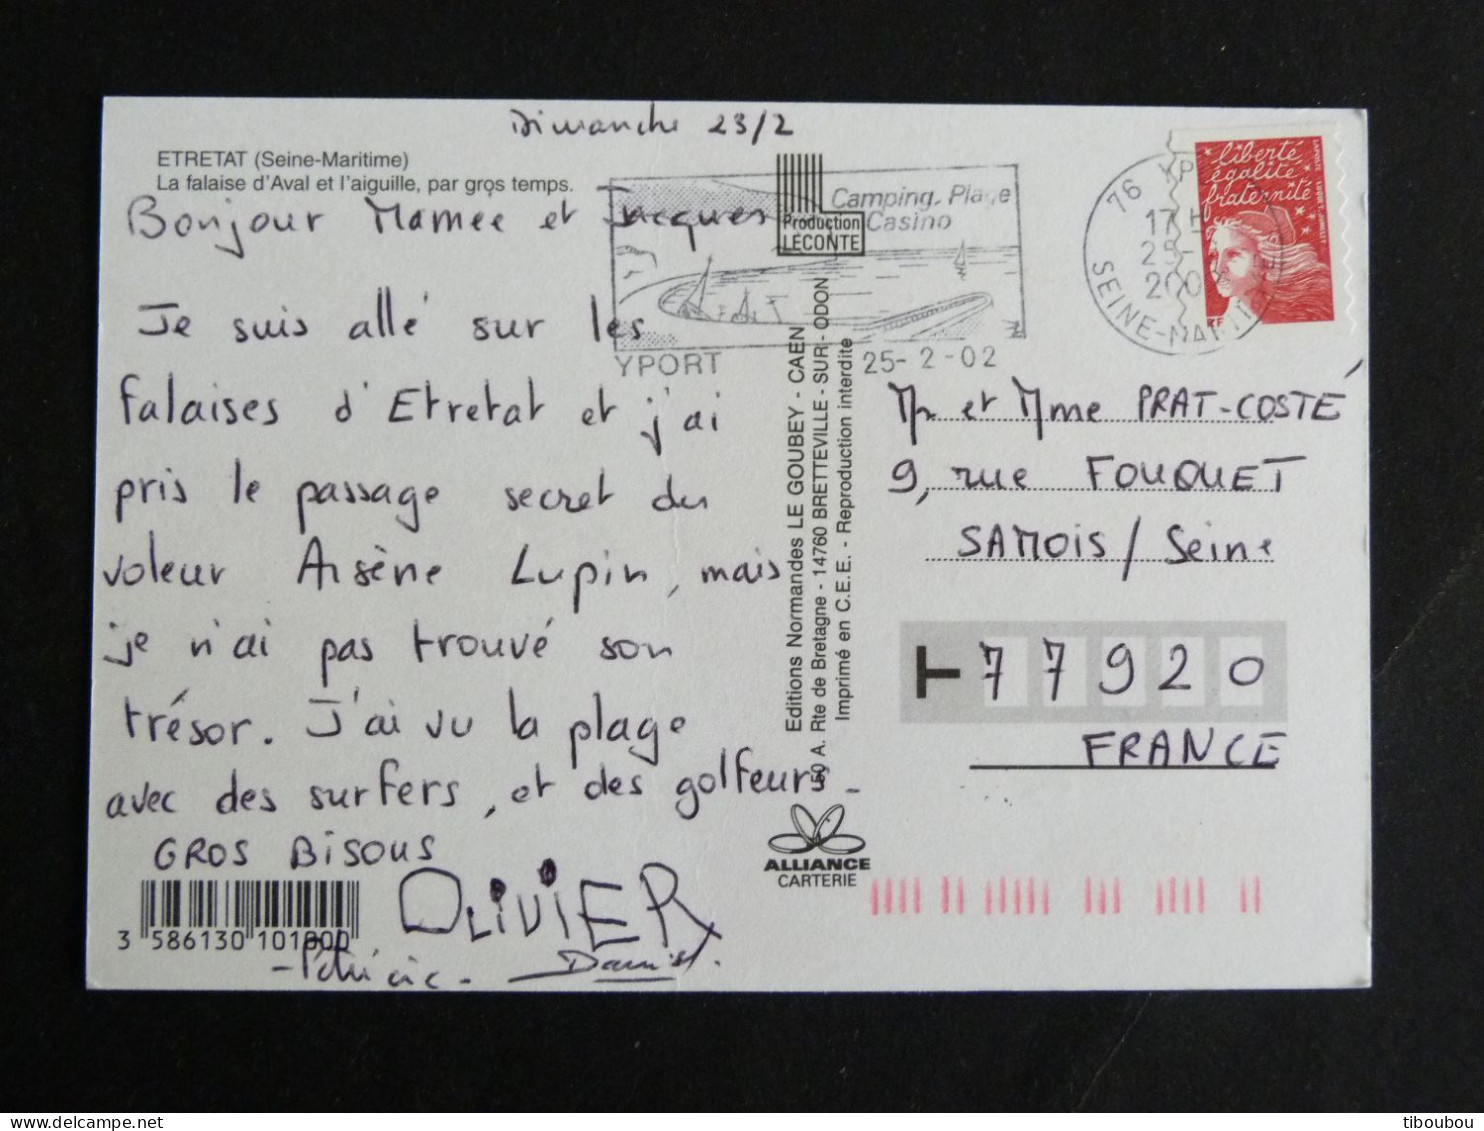 Dimanche 23/2
ETRETAT (Seine-Maritime)
La falaise d'Aval et l'aiguille, par gros temps.
Bonjour Mamée et Jacques
Je suis allé sur les
falaises d'Etretat et j'ai
pris le passage secret du
voleur Arsène Lupin, mais
je n'ai pas trouvé son
trésor. J'ai vu la plage
avec des surfers, et des golfeurs.
GROS BISOUS
OLIVIER
- Patricia -
Daniel.
3 586130 101000
Production
LECONTE
Camping. Plage
Casino
YPORT
25-2-02
76 YPORT
17H
25-
200
SEINE-MARITIME
liberté
égalité
fraternité
RF
Editions Normandes LE GOUBEY - CAEN
50 A. Rte de Bretagne - 14760 BRETTEVILLE - SUR - ODON
Imprimé en C.E.E. - Reproduction interdite
ALLIANCE
CARTERIE
Mr et Mme PRAT-COSTÉ
9, rue FOUQUET
SAMOIS / Seine
T 77920
FRANCE
tiboubou